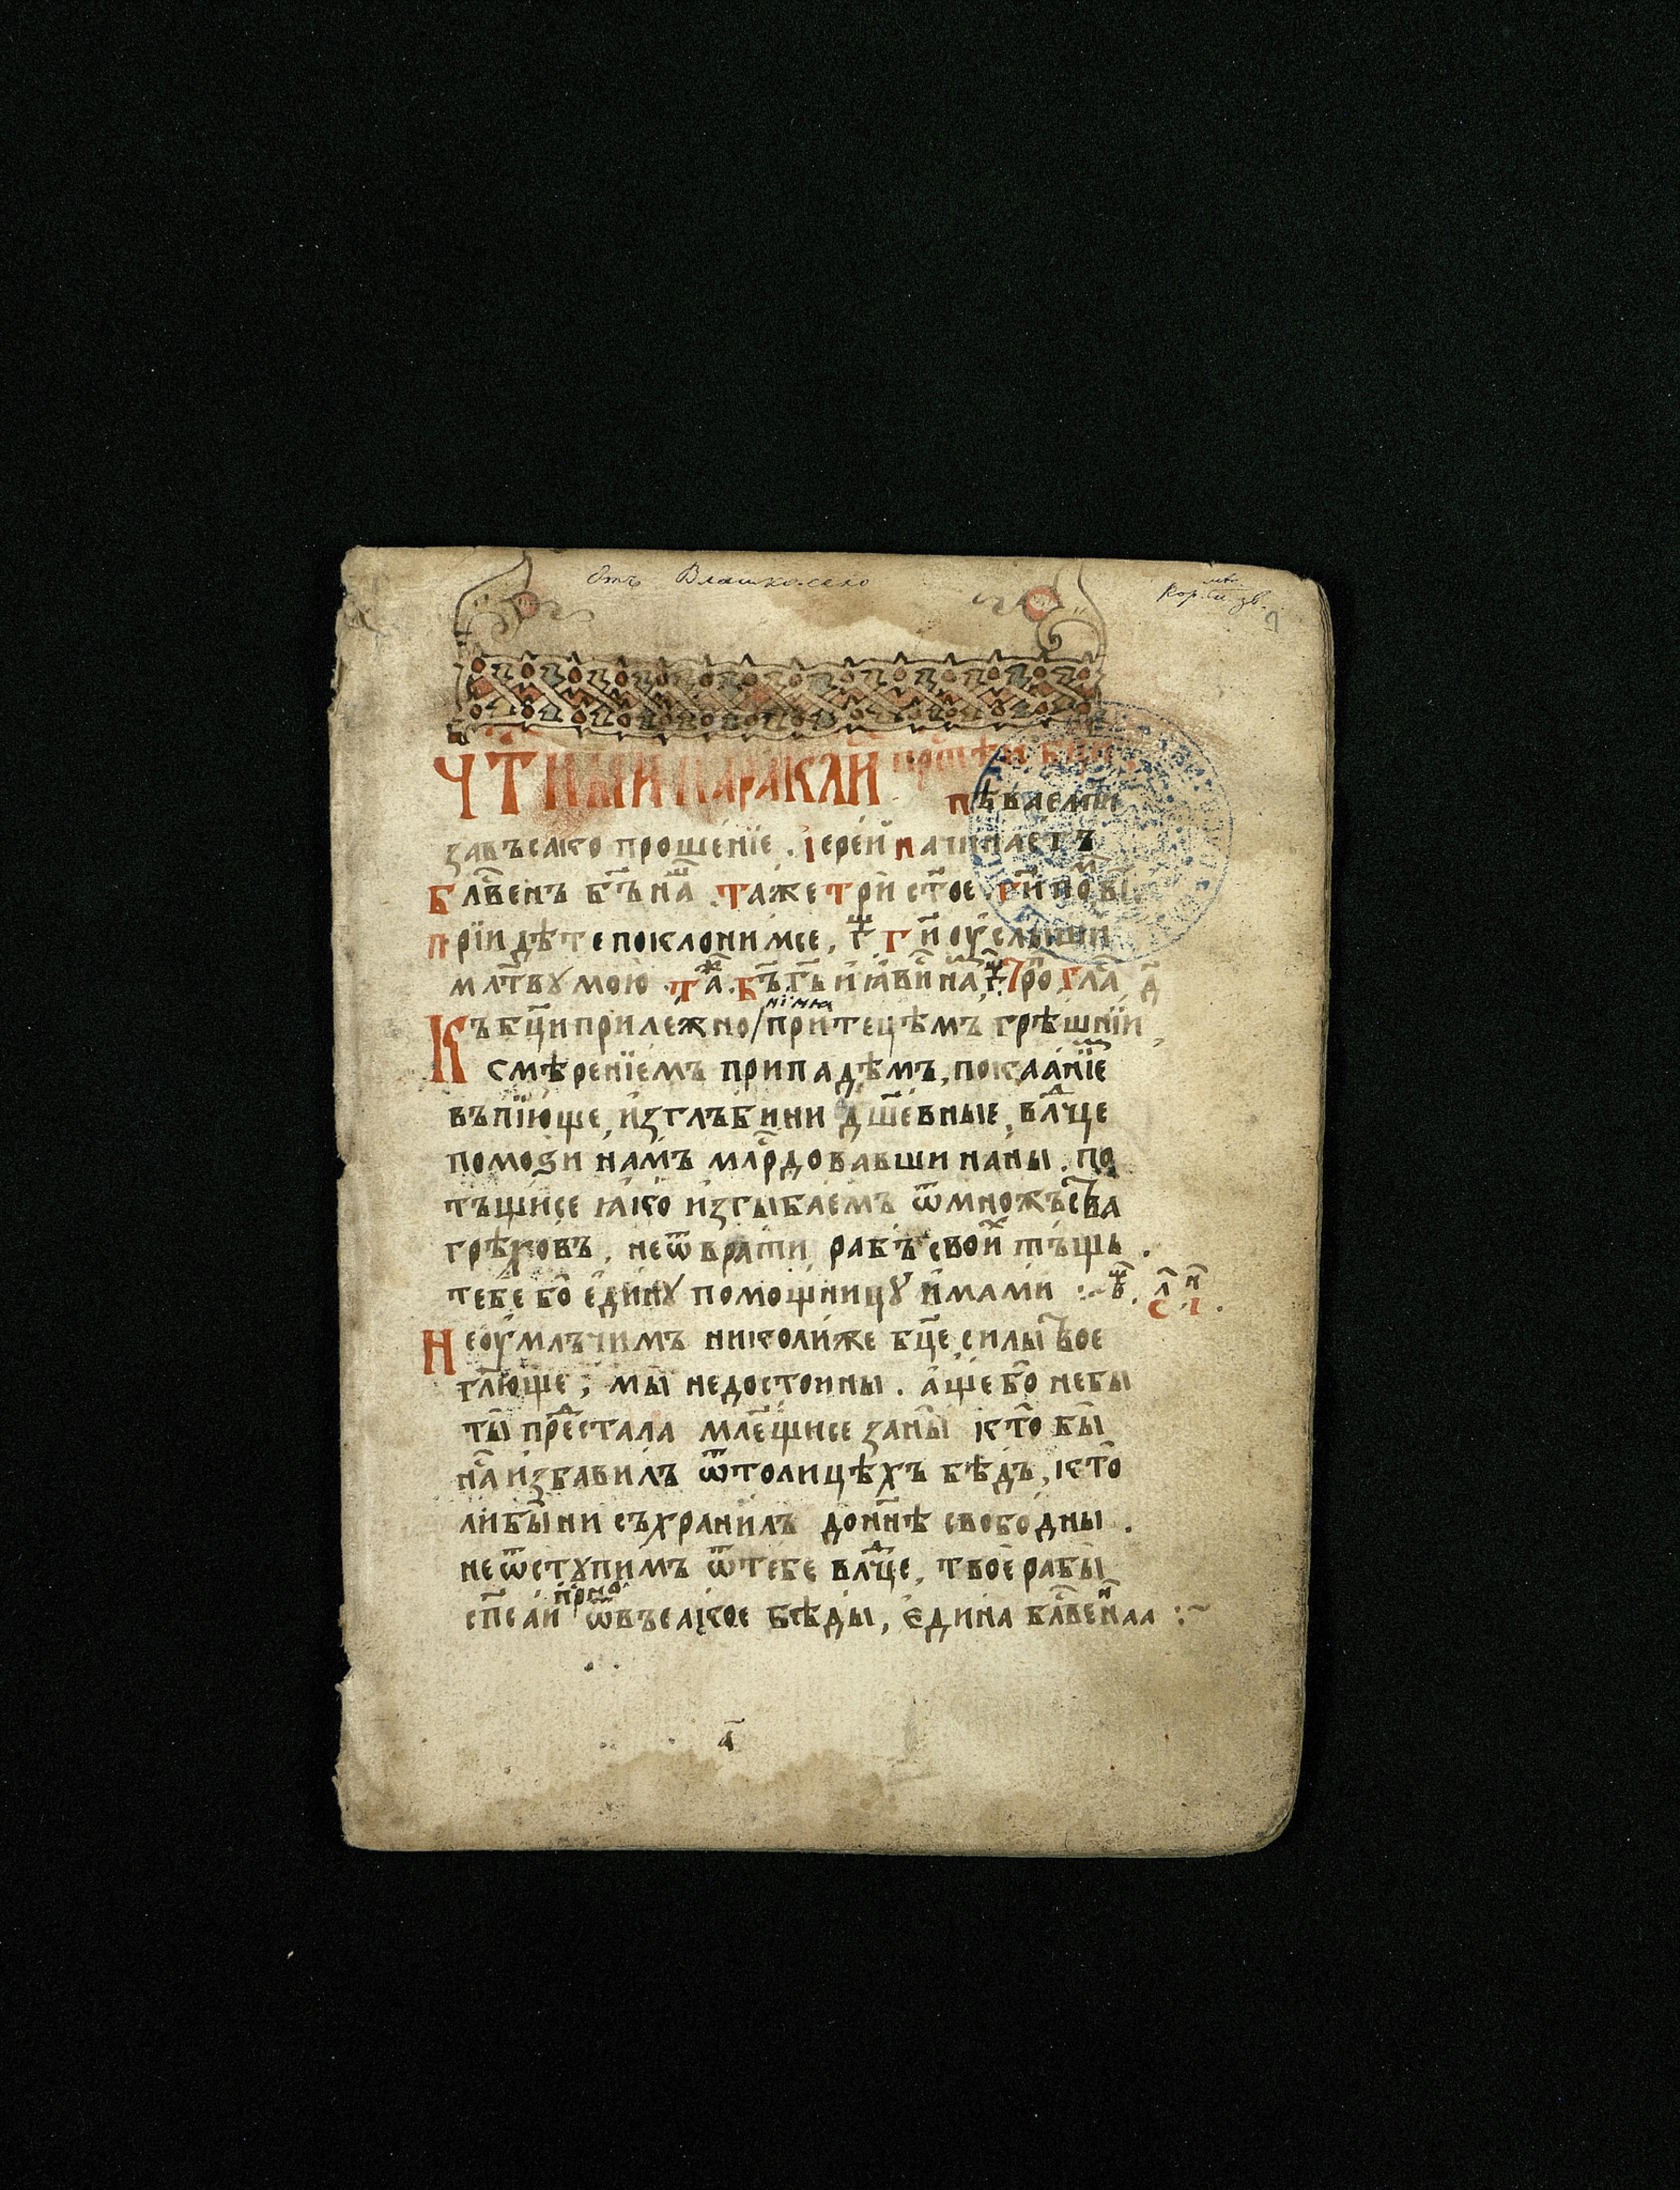 Отъ Влашко-село
Чт҇ныи параклӥ прѣс҇тѣи бц҃и
пѣваемїи
за въсако прошенїе . іерей начинаетъ
Блв҇енъ бг҃ъ на҇ш . таже три ст҃ое
прїидѣте поклонимсе, г҃ г҃и оуслыши
мл҃тву мою . та҇ж . бг҃ъ г҃ь и ꙗви҇ на҇ . тро҇ гла҇ д҃
Къ бц҃и прилежно / нин҃ꙗ притецѣмъ грѣшнїи
смѣренїемъ припадѣмъ, покаанїе҇м
въпїюще, изглъбини дш҃евные, вл҇дче
помоѕи намъ млр҇довавши на ны . по
тъщисе ꙗко изгыбаемъ ѿ множъст҇ва
грѣховъ . не ѿврати рабъ свои҇х тъщь .
тебе бо едину помощницу имами :~
Неоумлъчимъ николиже бц҃е силы твое
гл҃юще ; мы недостоины . аще бо не бы
ты прѣ҇дстала мл҃ещисе за ны кто бы
на҇ избавилъ ѿ толицѣхъ бѣдъ, кто
ли бы ни съхранилъ до нн҃ѣ свободны .
не ѿступимъ ѿ тебе вл҇дче, твое рабы
сп҃саи прно҇ ѿ въсакое бѣды, едина блв҇еннаа :~
а҃